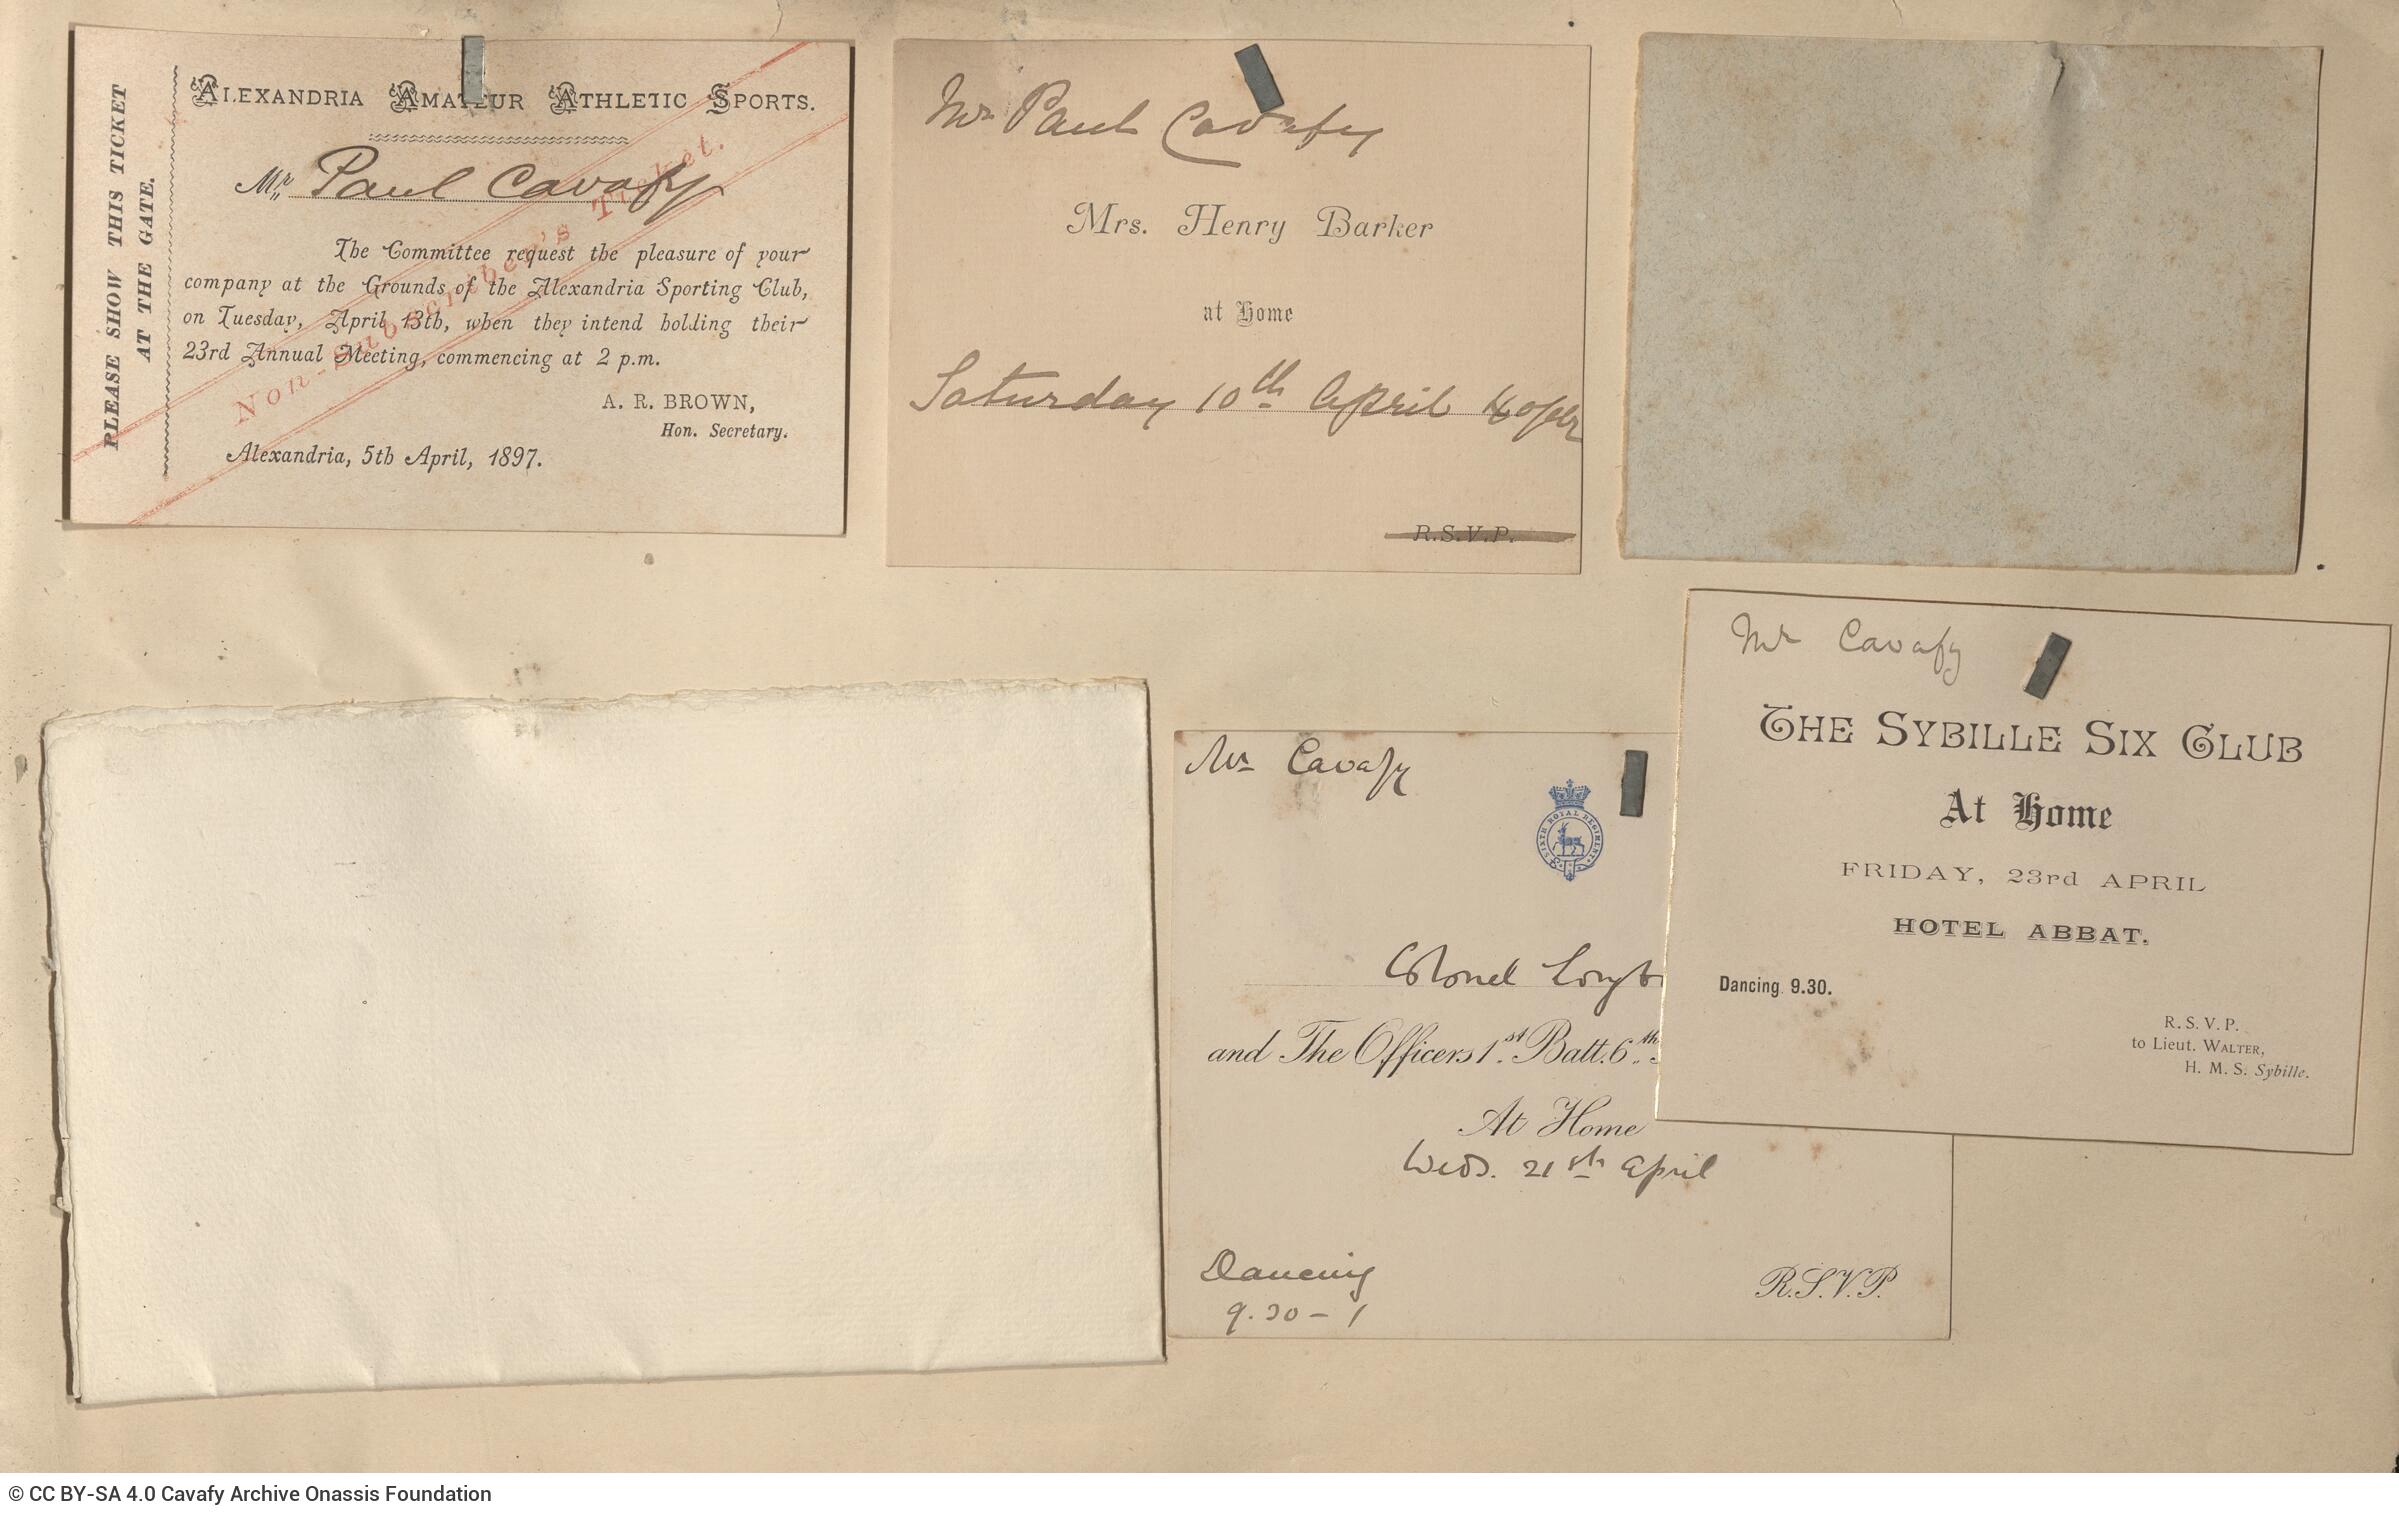 PLEASE SHOW THIS TICKET
AT THE GATE.
ALEXANDRIA AMATEUR ATHLETIC SPORTS.
Mr. Paul Cavafy
The Committee request the pleasure of your
company at the Grounds of the Alexandria Sporting Club,
on Tuesday, April 13th, when they intend holding their
23rd Annual Meeting, commencing at 2 p.m.
A. R. BROWN,
Hon. Secretary.
Alexandria, 5th April, 1897.
Non-Subscriber's Ticket.
Mr Paul Cavafy
Mrs. Henry Barker
at Home
Saturday 10th April
R.S.V.P.
Mr Cavafy
SIXTH ROYAL REGIMENT
Colonel
and The Officers 1st Batt. 6th
At Home
Weds. 21st April
Dancing
9.30 – 1
R.S.V.P.
Mr Cavafy
THE SYBILLE SIX CLUB
At Home
FRIDAY, 23rd APRIL
HOTEL ABBAT.
Dancing 9.30.
R. S. V. P.
to Lieut. WALTER,
H. M. S. Sybille.
© CC BY-SA 4.0 Cavafy Archive Onassis Foundation